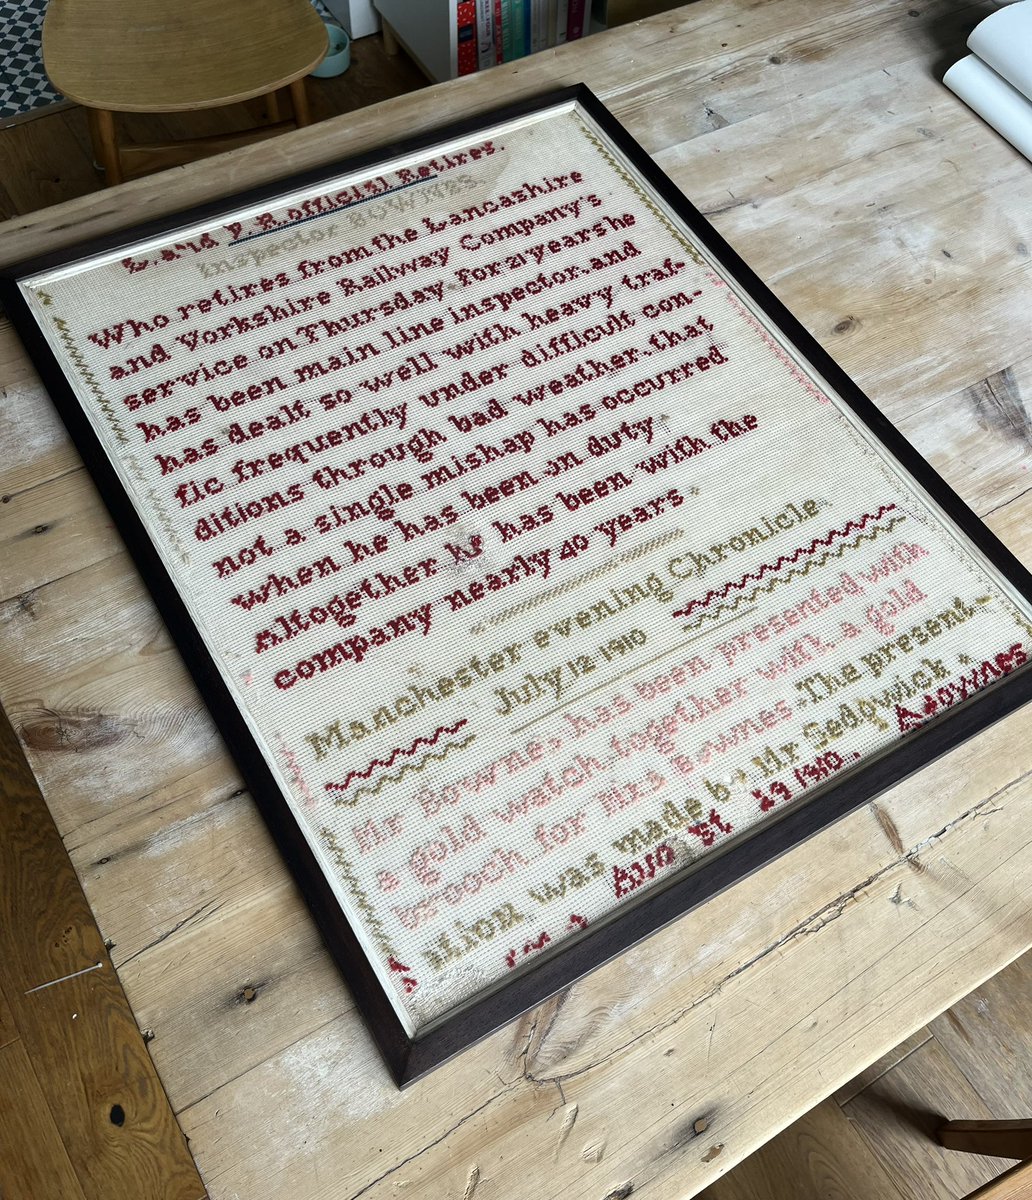 L. and Y. R. official Retires.
Inspector BOWNES.
Who retires from the Lancashire
and Yorkshire Railway Company's
service on Thursday. For 21 years he
has been main line inspector. and
has dealt so well with heavy traf-
fic frequently under difficult con-
ditions through bad weather. that
not a single mishap has occurred
when he has been on duty.
Altogether he has been with the
company nearly 40 years.
Manchester evening Chronicle.
July 12 1910
Mr Bownes has been presented with
a gold watch. together with a gold
brooch for Mrs Bownes. The present-
ation was made by Mr Sedgwick.
29 1910.